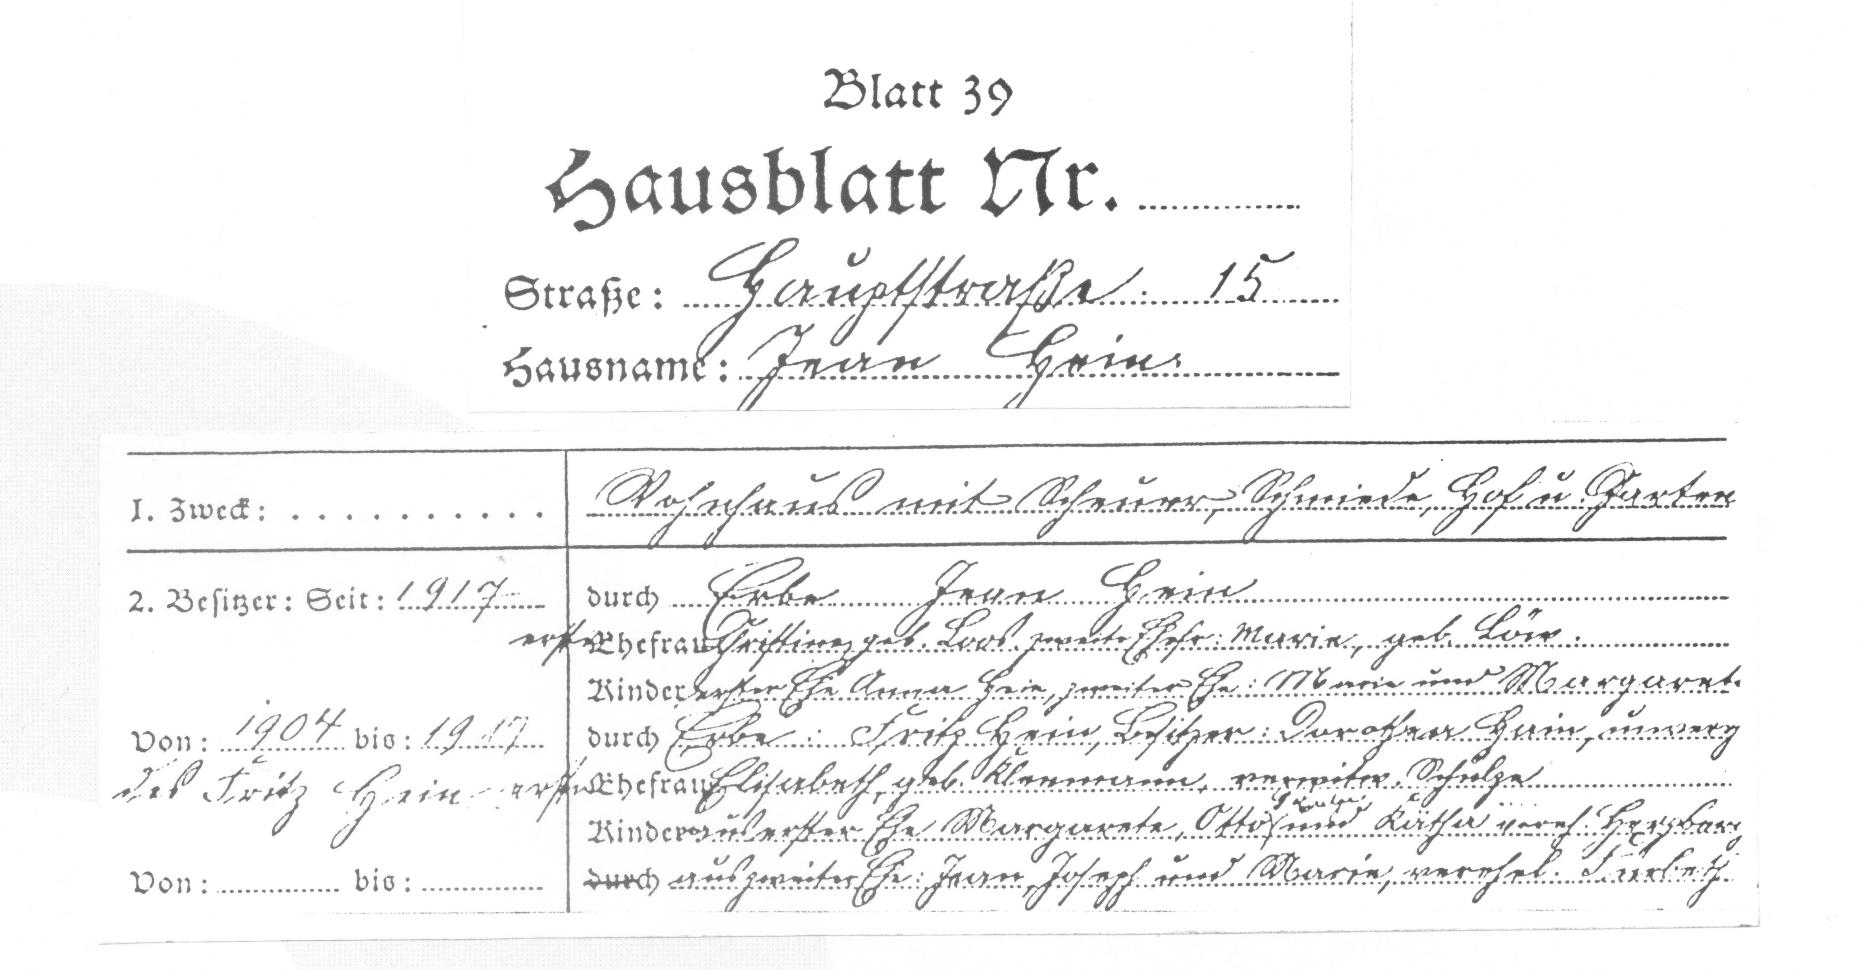 Blatt 39
Hausblatt Nr. ................
Straße: Hauptstraße 15
Hausname: Jean Hein.
1. Zweck: . . . . . . . . . . . Wohnhaus mit Scheuer, Schmiede, Hof u. Garten
2. Besitzer: Seit: 1917 durch Erbe Jean Hein
erste Ehefrau Christine geb. Loos. zweite Ehefr: Marie, geb. Löw.
Kinder erster Ehe Anna Hein, zweiter Ehe: Marie und Margaret.
Von: 1904 bis: 1917 durch Erbe: Fritz Hein, Besitzer: Dorothea Hain,
des Fritz Hein erste Ehefrau Elisabeth, geb. Kleemann, verwitw. Schulze
Kinder aus erster Ehe Margarete, Otto und Kätha
Von: ............ bis: ............ durch aus zweiter Ehe: Jean, Joseph und Marie, verehel.